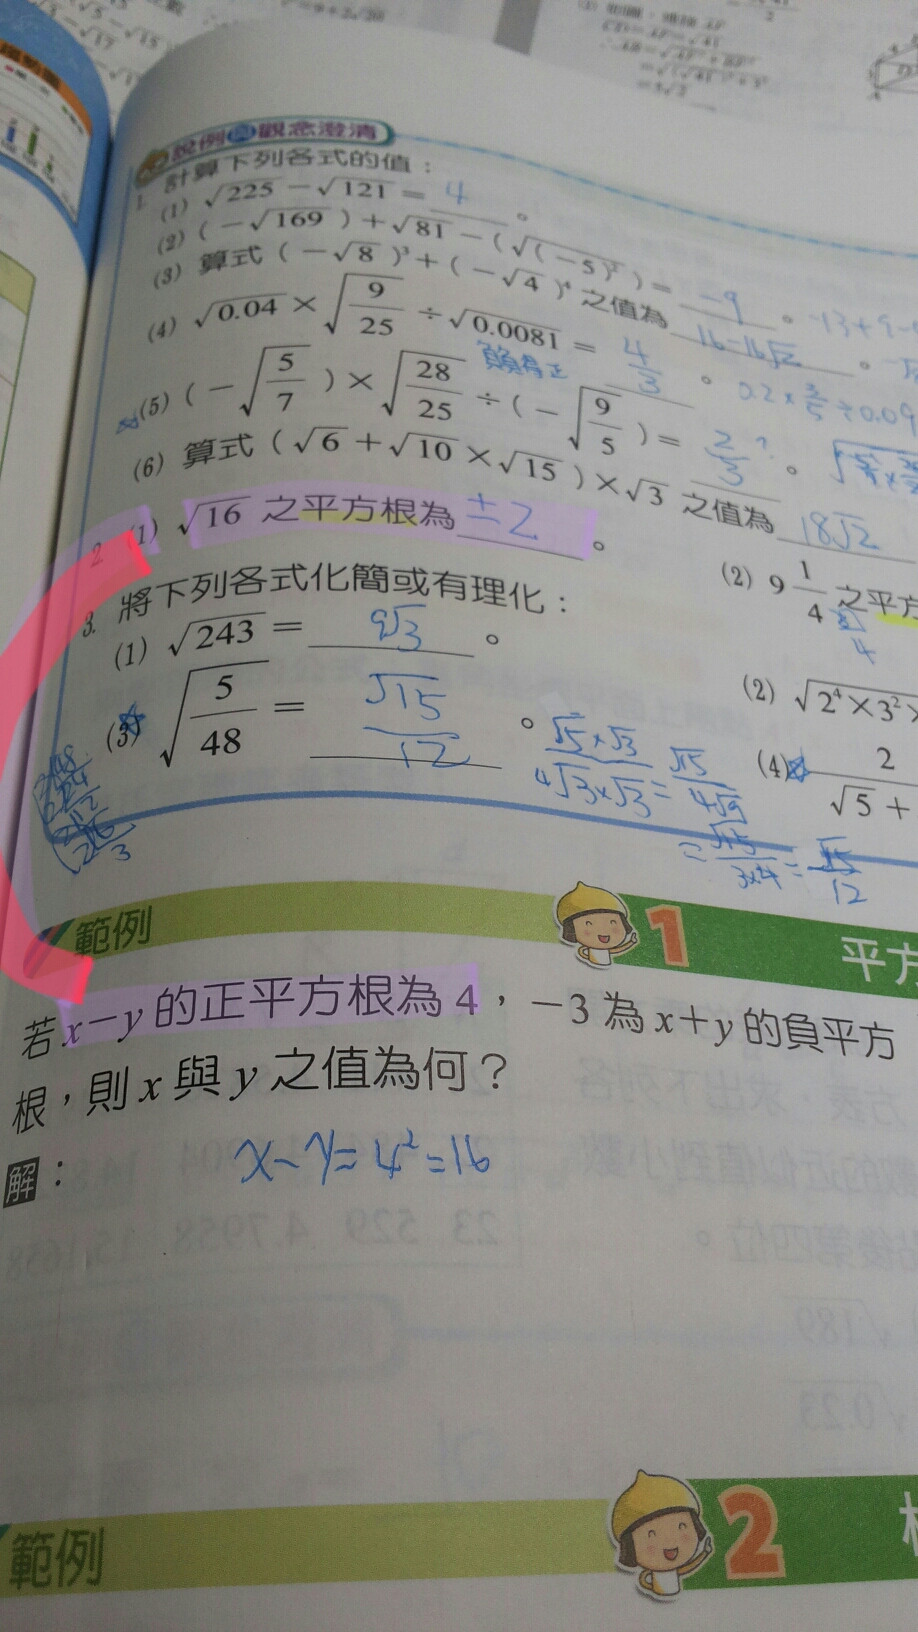 說例與觀念澄清
1. 計算下列各式的值：
(1) √225 − √121 = 4 。
(2) (−√169) + √81 − (√(−5)²) = −9 。 −13+9−
(3) 算式 (−√8)³ + (−√4)⁴ 之值為 16−16√2 。
(4) √0.04 × √(9/25) ÷ √0.0081 = 4/3 。 0.2×3/5÷0.09
(5) (−√(5/7)) × √(28/25) ÷ (−√(9/5)) = 2/3 ? 。
(6) 算式 (√6 + √10 × √15) × √3 之值為 18√2
2. (1) √16 之平方根為 ±2 。
(2) 9 1/4 之平方
3. 將下列各式化簡或有理化：
(1) √243 = 9√3 。
(2) √2⁴×3²×
(3) √(5/48) = √15/12 。
(4) 2/√5+
√5×√3/4√3×√3 = √15/4√9
= √15/3×4 = √15/12
範例 1 平方
若 x−y 的正平方根為 4，−3 為 x+y 的負平方
根，則 x 與 y 之值為何？
解：
x−y=4²=16
範例 2